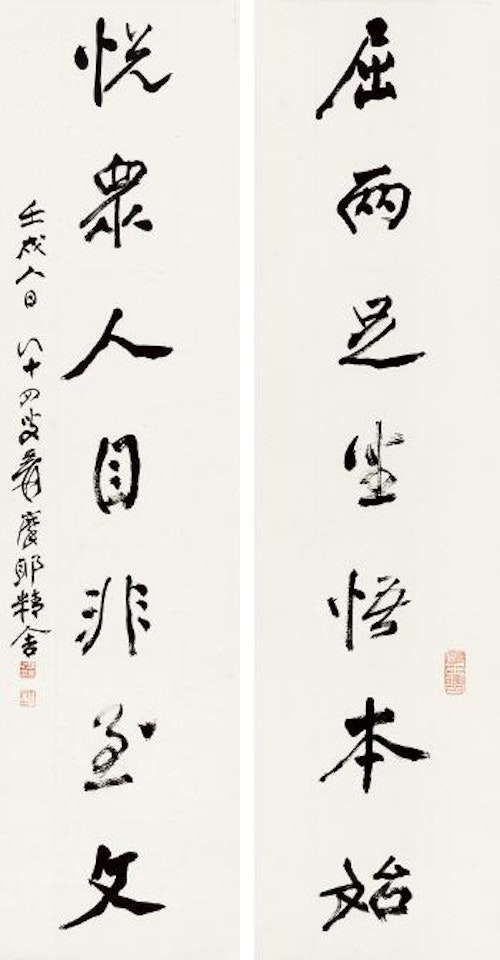 屈兩足坐悟本始
悅眾人目非至文
壬戌人日 八十四叟爰 摩耶精舍